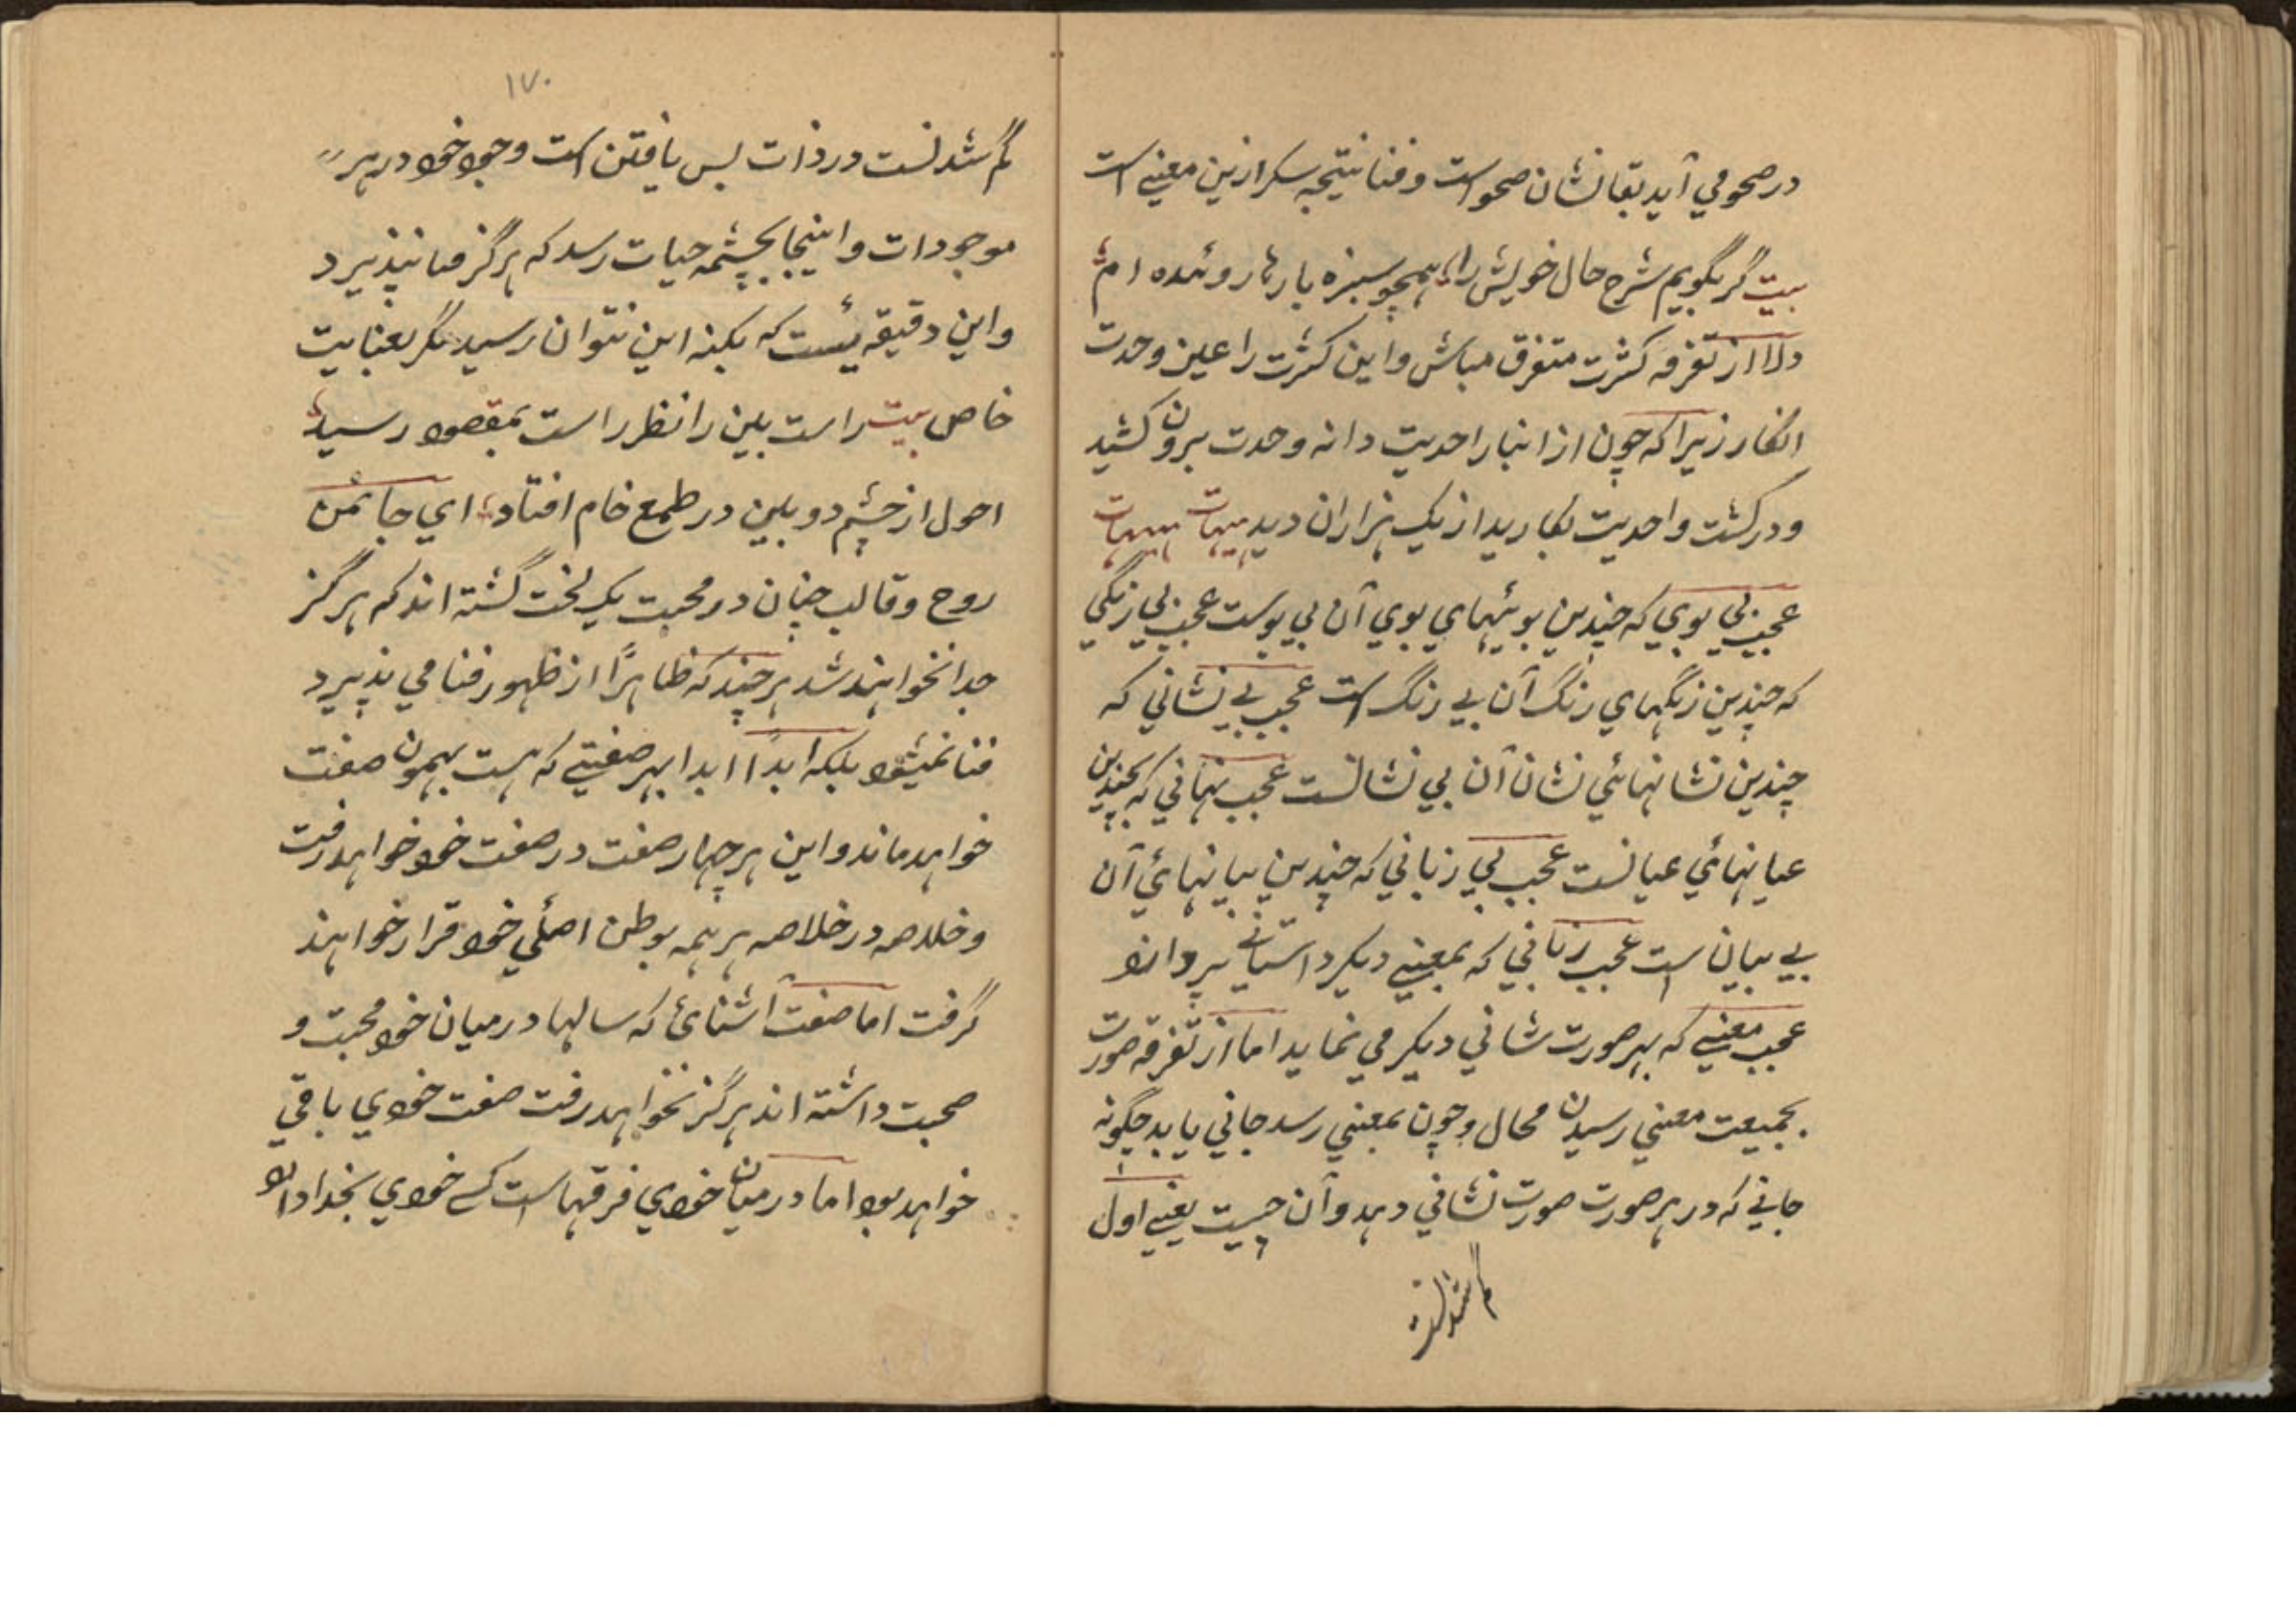 در صحو مي آيد بقا نشان صحو است و فنا نتيجه سكر ازين معنيے است
بيت گر بگويم شرح حال خويش را ؛ همچو سبزه بارها روئيده ام ؛
دلا از تفرقه كثرت متفرق مباش و اين كثرت را عين وحدت
انگار زيرا كه چون از انبار احديت دانه وحدت بيرون كشيد
و در كشت واحديت بكاريد از يك هزاران ديد هيهات هيهات
عجب بي بويي كه چندين بوئيهاي بوي آن بي بوست عجب بي رنگي
كه چندين رنگهاي رنگ آن بے رنگ است عجب بے نشاني كه
چندين نشانهائي نشان آن بي نشانست عجب نهاني كه چندين
عيانهائي عيانست عجب بي زباني كه چندين بيانهائي آن
بے بيان است عجب زباني كه بمعنيے ديگر داستانے پردازد
عجب معنيے كه بهر صورت شاني ديگر مي نمايد اما از تفرقه صورت
بجميعت معني رسيدن محال و چون بمعني رسد جاني يابد چگونه
جانے كه در هر صورت صورت نشاني دهد و آن چيست يعنيے اول
گم شدنست
١٧٠
گم شدنست در ذات پس يافتن است وجود خود در هر
موجودات و اينجا بچشمه حيات رسد كه هرگز فنا نپذيرد
و اين دقيقه ئيست كه بكنه اين نتوان رسيد مگر بعنايت
خاص بيت راست بين را نظر راست بمقصود رسيد ؛
احول از چشم دو بين در طمع خام افتاد ؛ اي جانمن
روح و قالب چنان در محبت يک لخت گشته اند كه هرگز
جدا نخواهند شد هر چند كه ظاهرًا از ظهور فنا مي پذيرد
فنا نميشود بلكه ابدًا ابدا بهر صفتے كه هست بهمون صفت
خواهد ماند و اين هر چهار صفت در صفت خود خواهد رفت
و خلاصه در خلاصه هر همه بوطن اصلي خود قرار خواهند
گرفت اما صفت آشنائ كه سالها در ميان خود محبت و
صحبت داشته اند هرگز نخواهد رفت صفت خودي باقي
خواهد بود اما در ميان خودي فرقها است كسے خودي بخدا داد